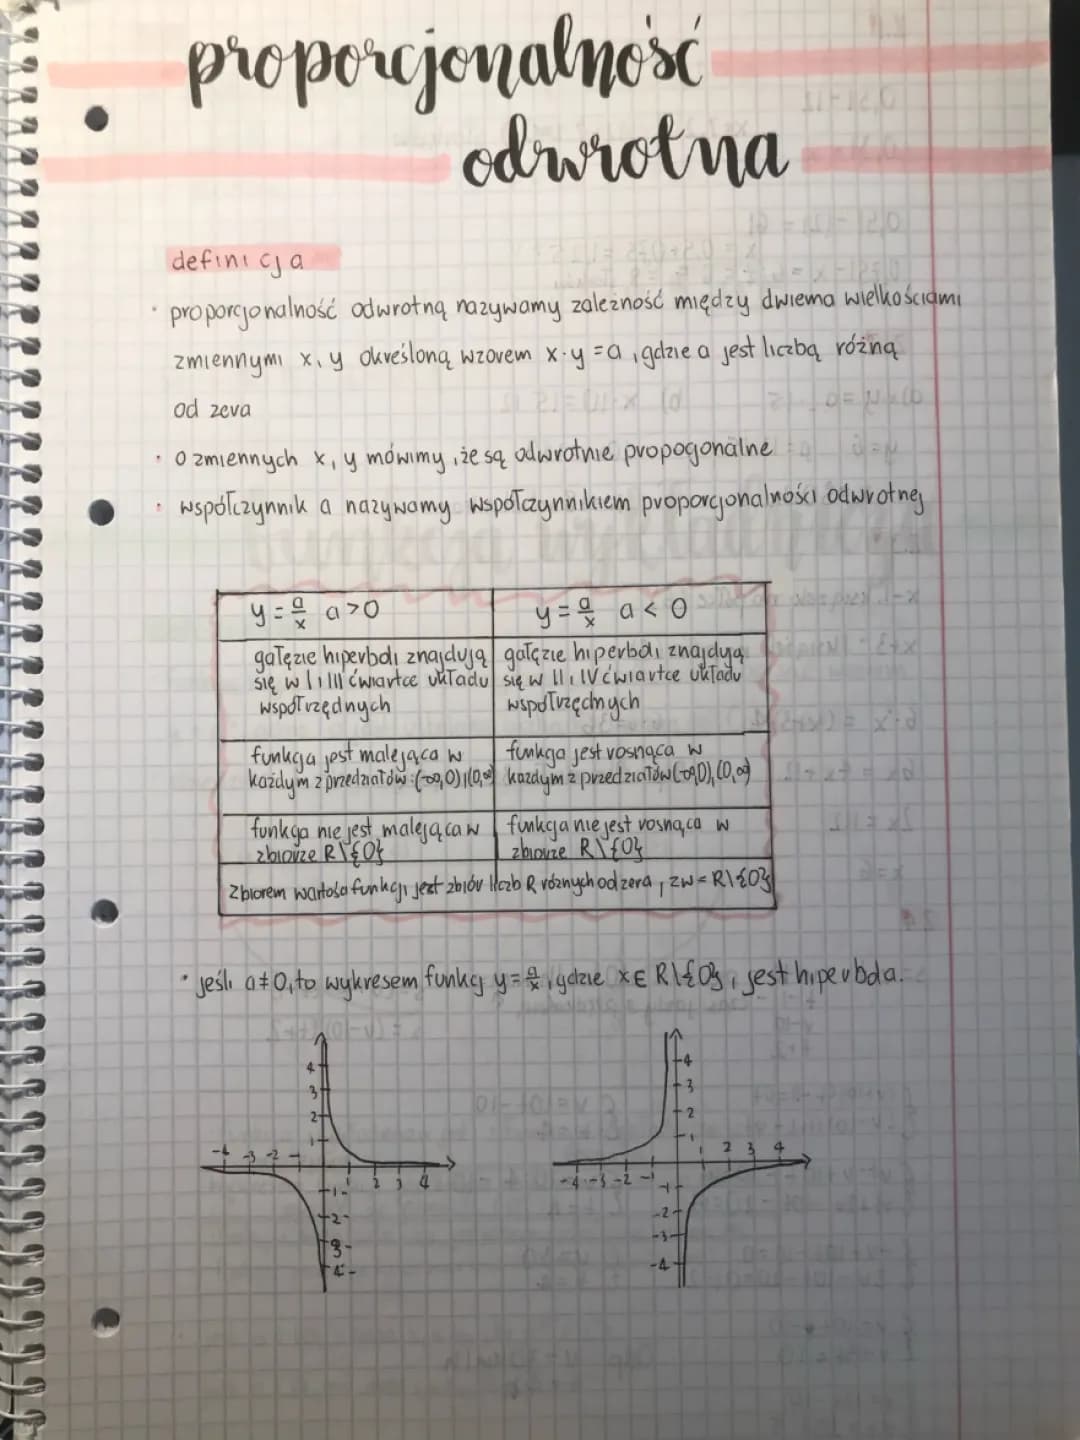 proporcjonalność
odwrotna
definicja
• proporcjonalność odwrotną nazywamy zależność między dwiema wielkościami
zmiennymi x, y określoną wzorem x·y = a, gdzie a jest liczbą różną
od zera
• o zmiennych x, y mówimy, że są odwrotnie propogonalne
• współczynnik a nazywamy współczynnikiem proporcjonalności odwrotnej
y = a/x a > 0
y = a/x a < 0
gałęzie hiperboli znajdują
się w I i III ćwiartce układu
współrzędnych
gałęzie hiperboli znajdują
się w II i IV ćwiartce układu
współrzędnych
funkcja jest malejąca w
każdym z przedziałów: (-∞,0) i (0,∞)
funkcja jest rosnąca w
każdym z przedziałów (-∞,0), (0,∞)
funkcja nie jest malejąca w
zbiorze R\{0}
funkcja nie jest rosnąca w
zbiorze R\{0}
Zbiorem wartości funkcji jest zbiór liczb R różnych od zera, zw = R\{0}
• jeśli a ≠ 0, to wykresem funkcj y = a/x, gdzie x ∈ R\{0}, jest hiperbola.
4
3
2
1
-4 -3 -2 -
1 2 3 4
-1-
-2-
-3-
-4-
4
3
2
1
2 3 4
-4 -3 -2 -1
-1
-2
-3
-4